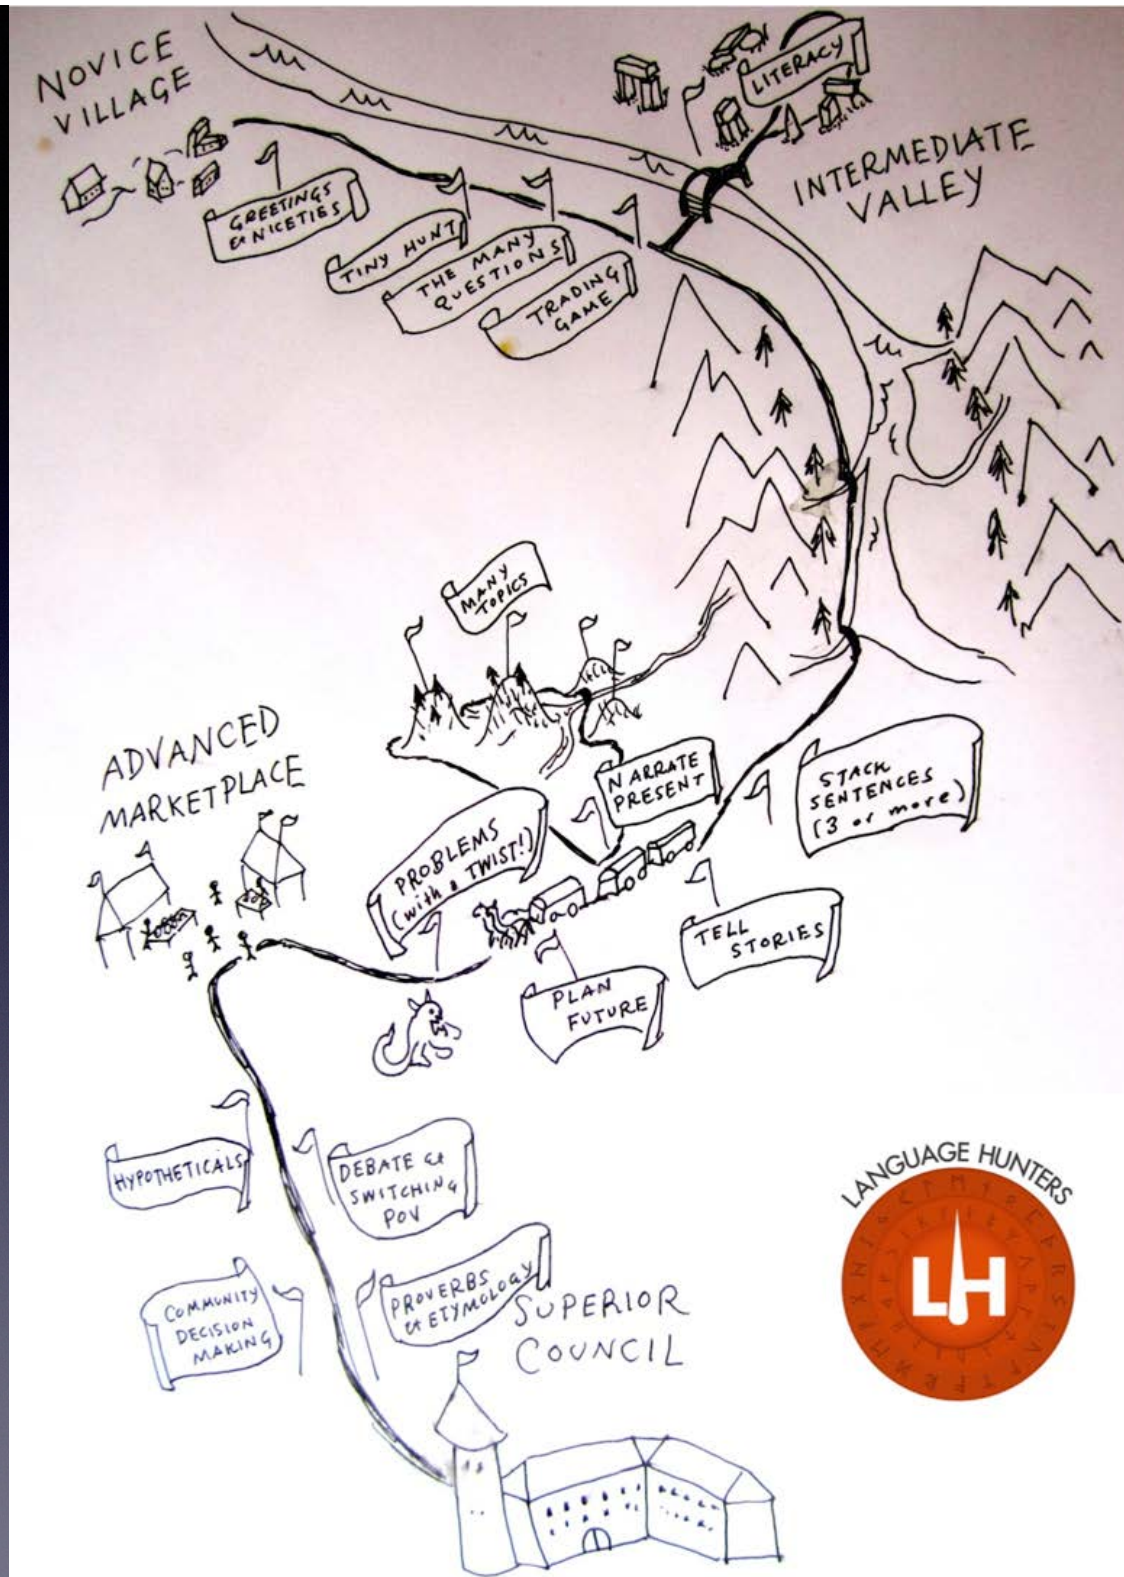 NOVICE
VILLAGE
LITERACY
INTERMEDIATE
VALLEY
GREETINGS
& NICETIES
TINY HUNT
THE MANY
QUESTIONS
TRADING
GAME
MANY
TOPICS
ADVANCED
MARKETPLACE
NARRATE
PRESENT
STACK
SENTENCES
(3 or more)
PROBLEMS
(with a TWIST!)
TELL
STORIES
PLAN
FUTURE
HYPOTHETICALS
DEBATE &
SWITCHING
POV
COMMUNITY
DECISION
MAKING
PROVERBS
& ETYMOLOGY
SUPERIOR
COUNCIL
LANGUAGE HUNTERS
LH